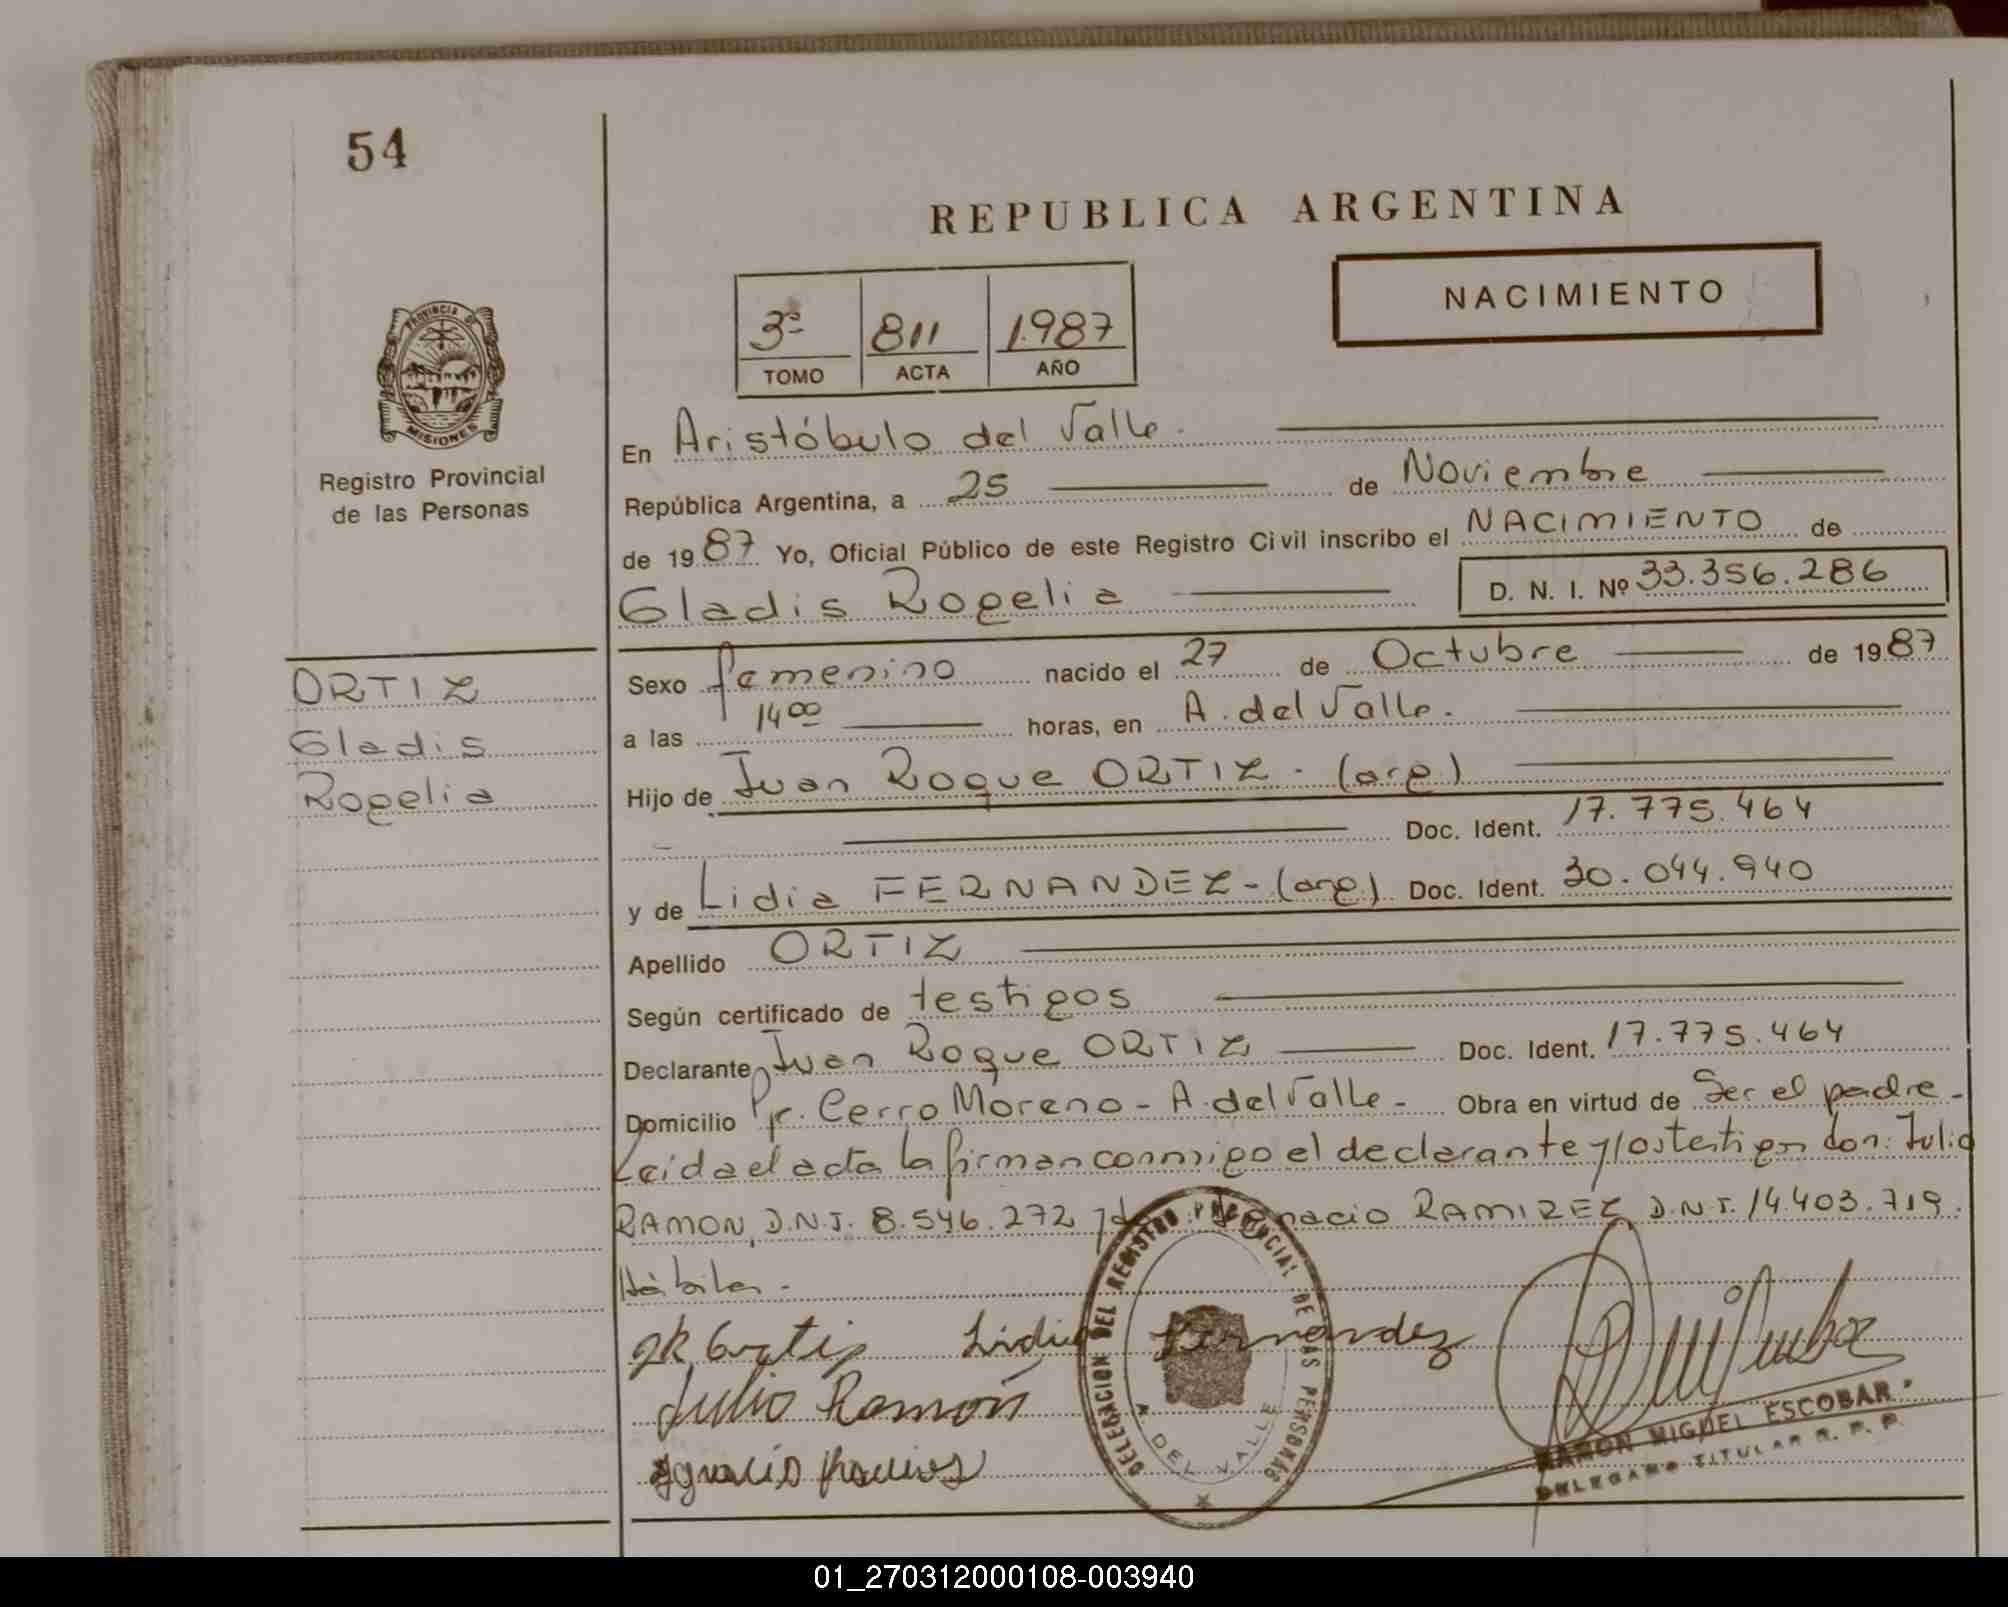 54
REPUBLICA ARGENTINA
NACIMIENTO
3º 811 1.987
TOMO ACTA AÑO
PROVINCIA DE
MISIONES
Registro Provincial
de las Personas
En Aristóbulo del Valle.
República Argentina, a 25 de Noviembre
de 1987 Yo, Oficial Público de este Registro Civil inscribo el NACIMIENTO de
Gladis Rogelia D. N. I. Nº 33.356.286
ORTIZ
Gladis
Rogelia
Sexo femenino nacido el 27 de Octubre de 1987
a las 14 00 horas, en A. del Valle.
Hijo de Juan Roque ORTIZ - (arg)
Doc. Ident. 17.775.464
y de Lidia FERNANDEZ - (arg) Doc. Ident. 30.044.940
Apellido ORTIZ
Según certificado de testigos
Declarante Juan Roque ORTIZ Doc. Ident. 17.775.464
Domicilio Pr. Cerro Moreno - A. del Valle - Obra en virtud de Ser el padre -
Leida el acta la firman conmigo el declarante y los testigos don: Julio
RAMON, D.N.I. 8.546.272 y don: Ignacio RAMIREZ D.N.I. 14.403.719.
Hábiles -
Lidia Fernandez
Julio Ramón
Ignacio
DELEGACION DEL REGISTRO PROVINCIAL DE LAS PERSONAS
A DEL VALLE
RAMON MIGUEL ESCOBAR
DELEGADO TITULAR R. P. P.
01_270312000108-003940